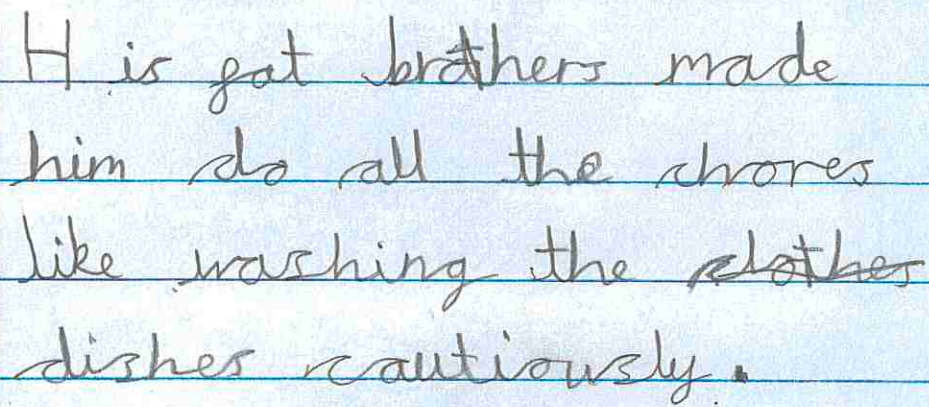 His fat brothers made
him do all the chores
like washing the clothes
dishes cautiously.